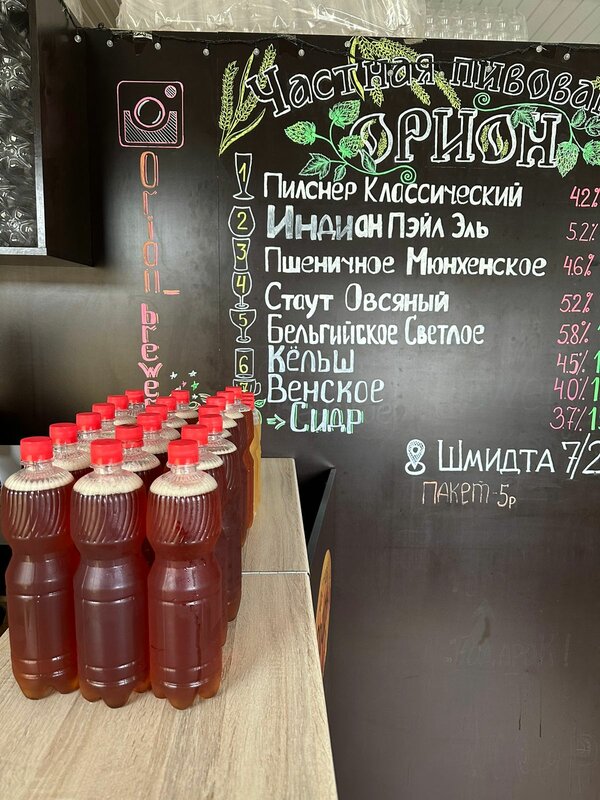 Частная пивова
ОРИОН
1 Пилснер Классический 4.2%
2 Индиан Пэйл Эль 5.2%
3 Пшеничное Мюнхенское 4.6%
4 Стаут Овсяный 5.2%
5 Бельгийское Светлое 5.8%
6 Кёльш 4.5% 1
7 Венское 4.0% 1
→ Сидр 3.7% 1
Шмидта 7/2
ПАКЕТ-5р
Orion_brewe